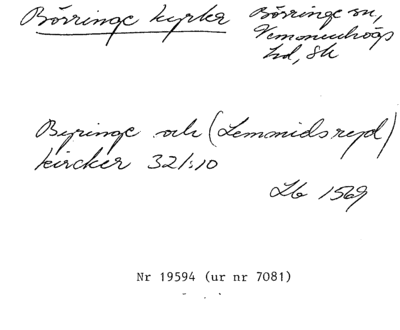 Börringe kyrka Börringe sn,
Vemmenhögs
hd, Sk
Byringe och (Lemmidsryd)
kircker 321:10
Lb 1569
Nr 19594 (ur nr 7081)